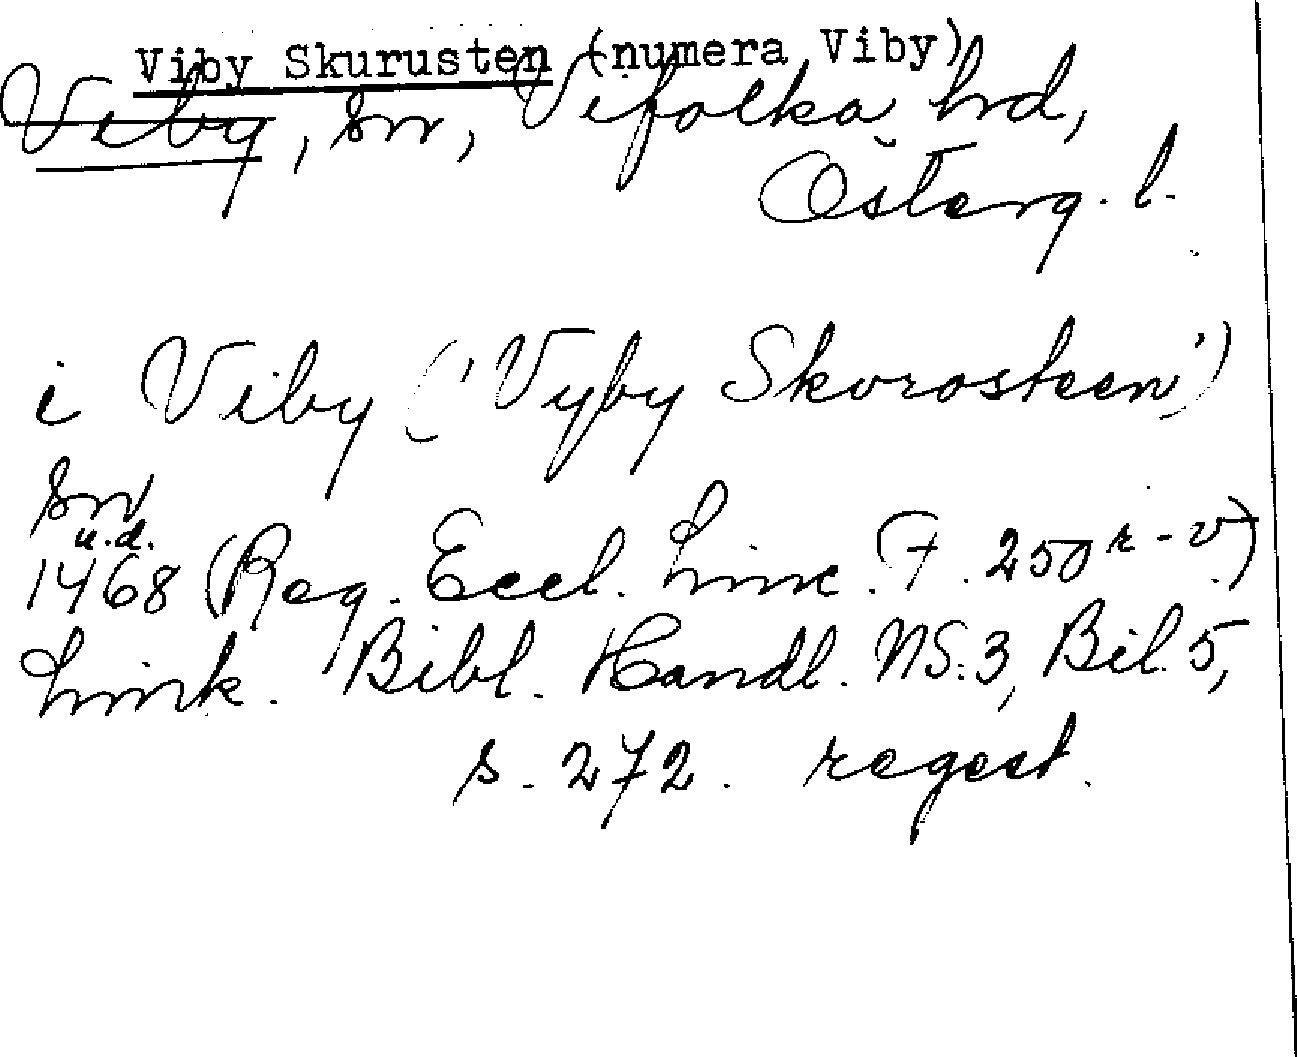 Viby Skurusten (numera Viby)
Viby, sn, Vifolka hrd,
Österg. l.
i Viby ('Vyby Skorosteen')
sn
u.d.
1468 (Reg. Eccl. Linc. F. 250 r-v)
Link. Bibl. Handl. NS.3, Bil. 5,
s. 272. regest.